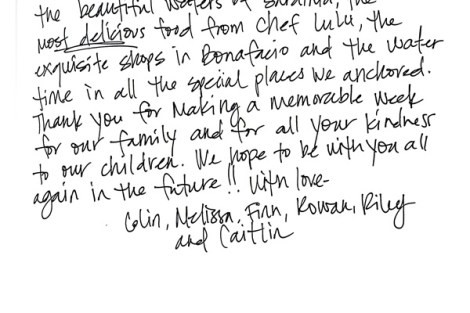 the beautiful waters of Sardinia, the
most delicious food from Chef Lulu, the
exquisite shops in Bonafacio and the water
time in all the special places we anchored.
Thank you for making a memorable week
for our family and for all your kindness
to our children. We hope to be with you all
again in the future!! With love-
Colin, Melissa, Finn, Rowan, Riley
and Caitlin